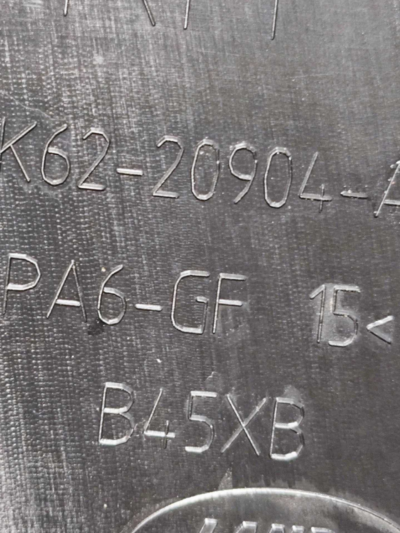 K62-20904-A
PA6-GF 15<
B45XB